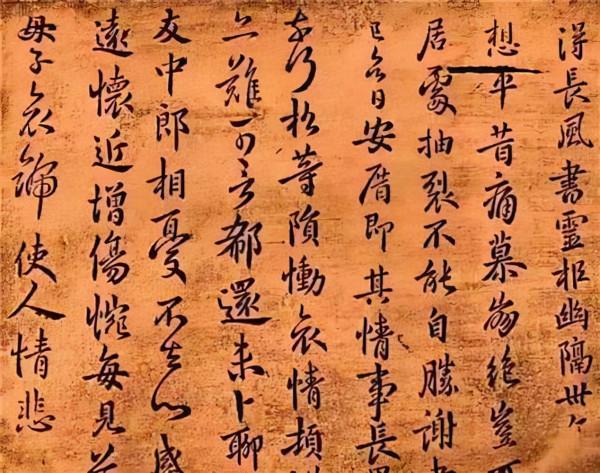 得長風書靈柩幽隔卅々
想平昔痛慕崩絕豈
居處抽裂不能自勝謝
日安厝即其情事長
奈何松等隕慟哀情頓
亦難可言郗還未卜聊
友中郎相憂不去心感
遠懷近增傷惋每見
母子哀號使人情悲